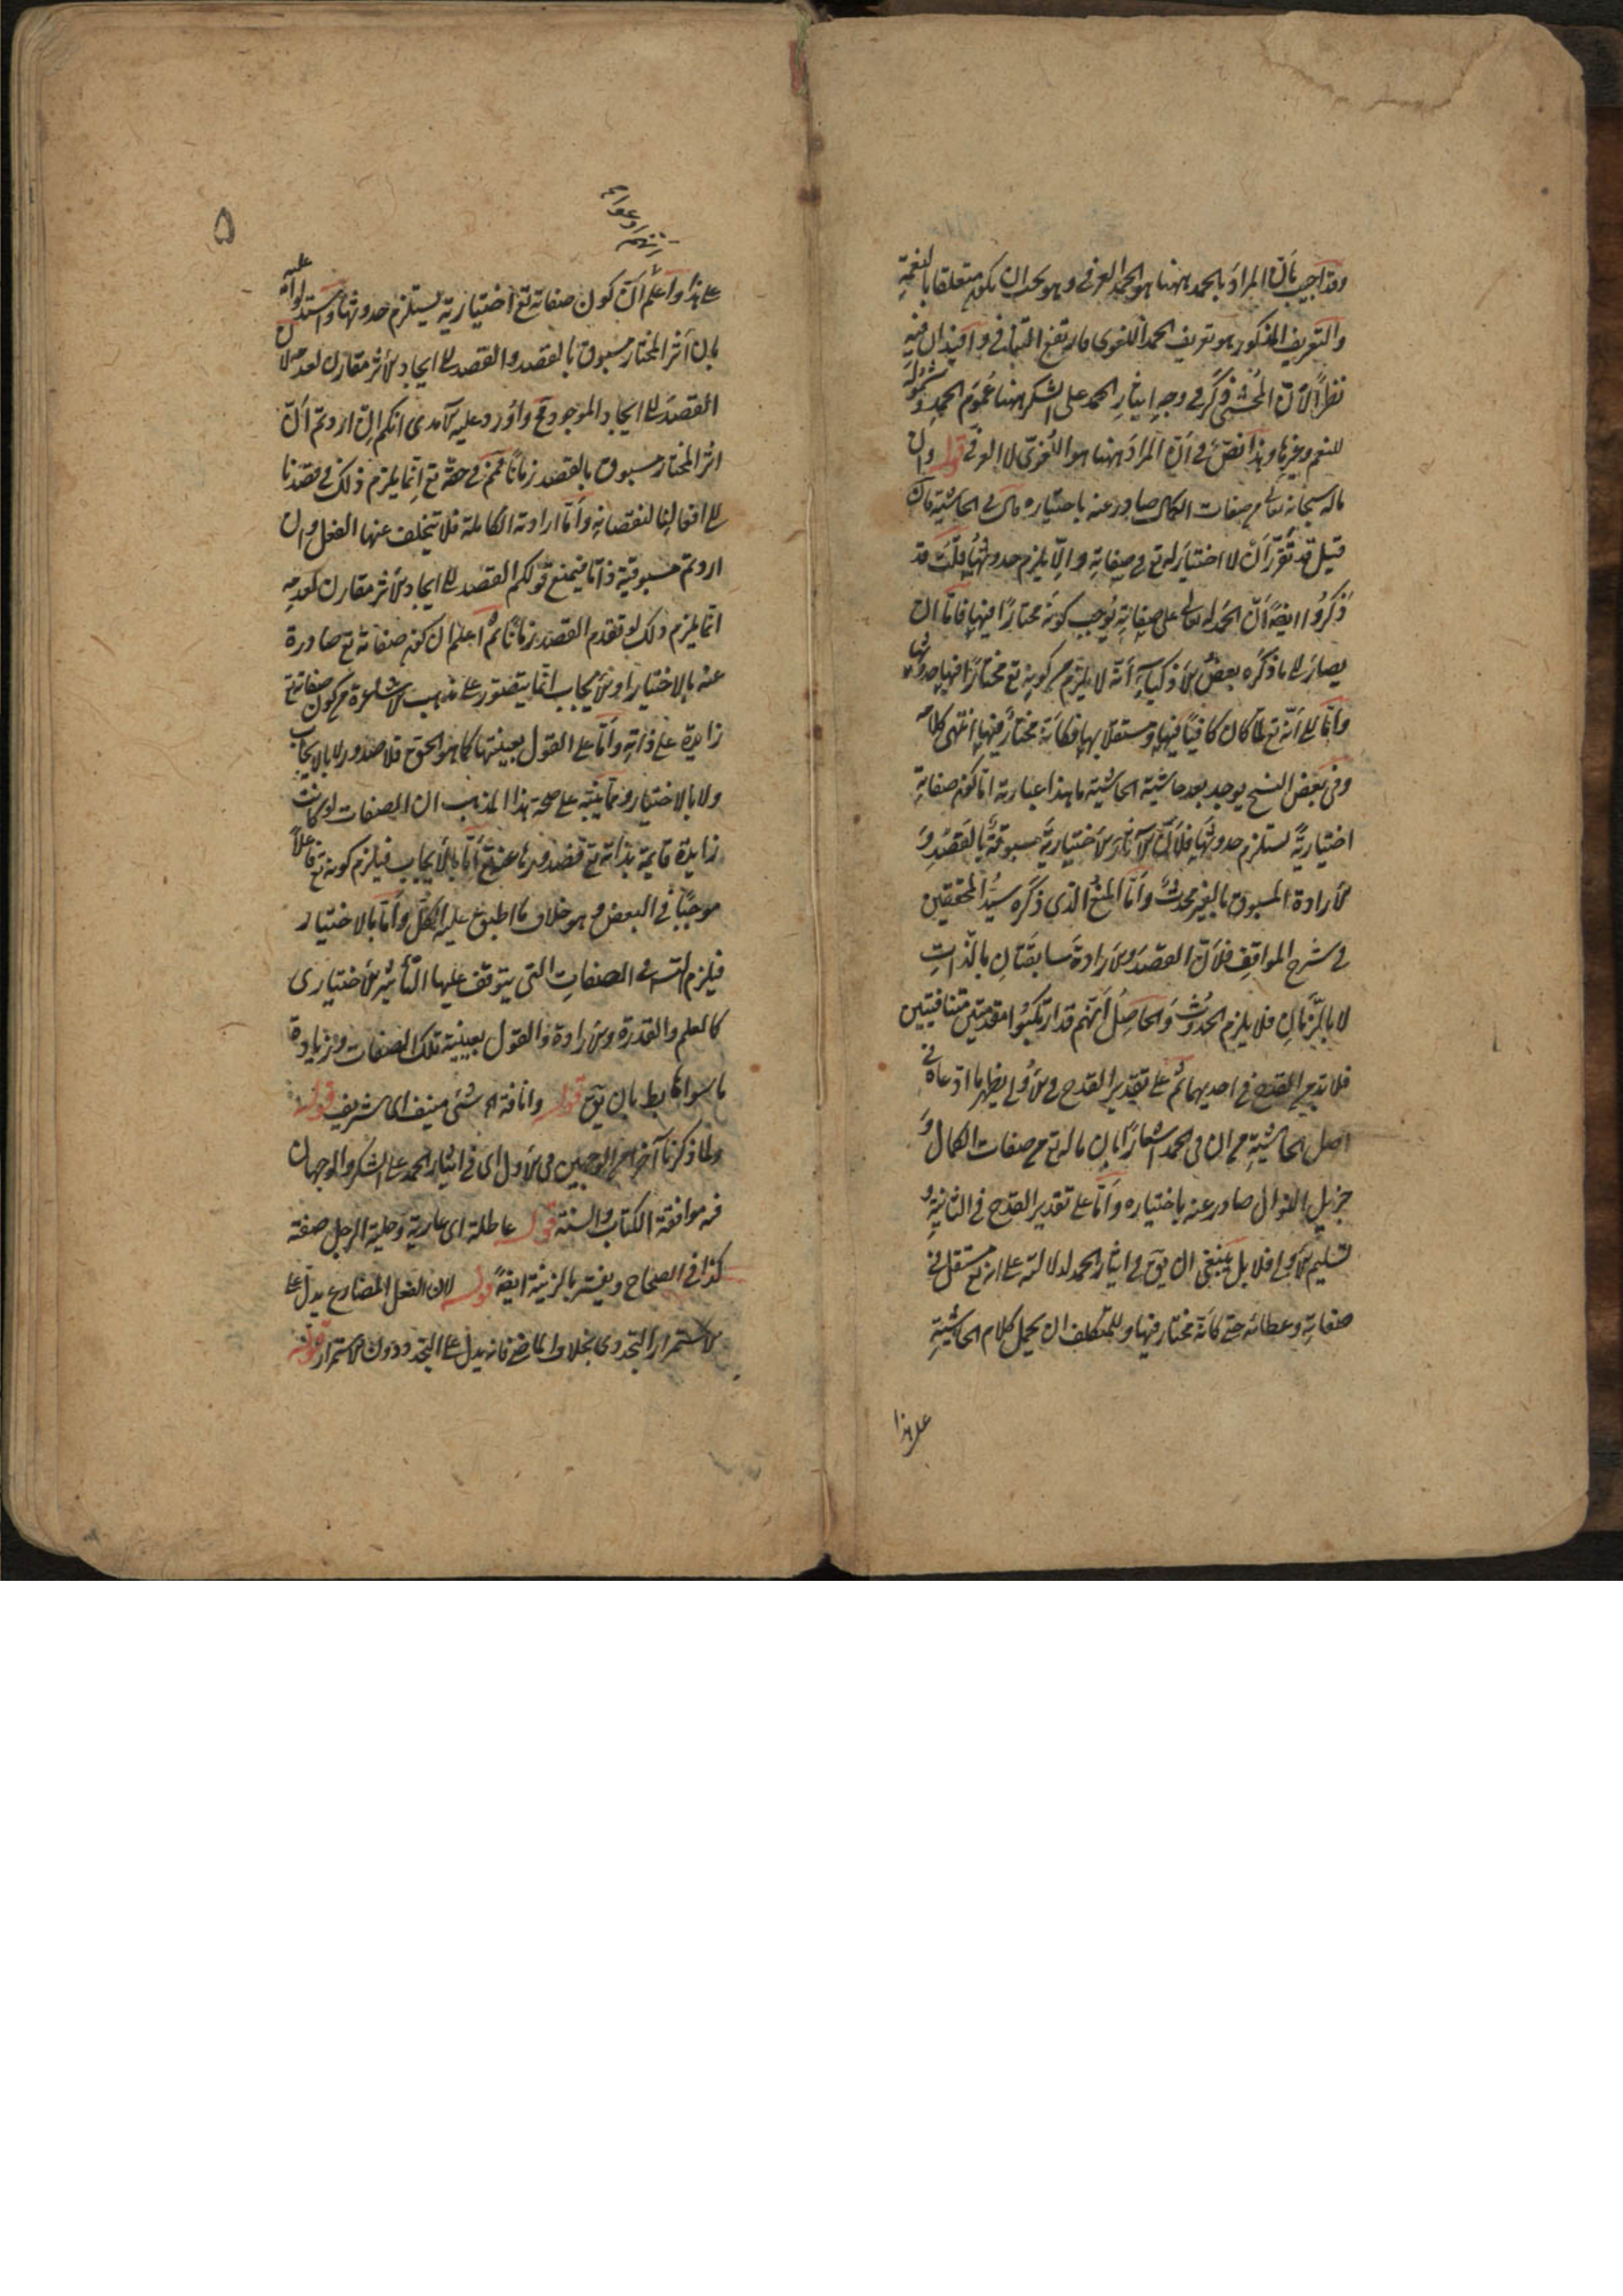 وقد اجيب بأن المراد بالحمد ههنا هو الحمد العرفي وهو يجب ان يكون متعلقا بالنعمة
والتعريف المذكور هو تعريف الحمد اللغوى فارتفع التنافي وا فيه ان فيه
نظرًا لأنّ المُحشّى ذكر في وجه ايثار الحمد على الشكر ههنا عُموم الحمد وشموله
للنعم وغيرها وهذا نصّ في أنّ المراد ههنا هو اللُّغويّ لا العرفي قوله وان
ماله سبحانه تعالى من صفات الكمال صادر عنه باختياره قال في الحاشية فان
قيل قد تقرّر أنْ لا اختيار له تع في صفاته والّا يلزم حدوثها قلتُ قد
ذكرُوا ايضًا أنّ الحمد له تعالى على صفاته يُوجب كونه مختارًا فيها فامّا ان
يصار الى ما ذكره بعض الأذكياء أنه لا يلزم من كونه تع مختارًا فيها حدوثها
وامّا الى أنّه تع لمّا كان كافيًا فيها ومستقلا بها فكأنّه مختارٌ فيها انتهى كلامه
وفى بعض النسخ يوجد بعد حاشية الحاشية ما هذا عبارته امّا كون صفاته
اختياريةً يستلزم حدوثها فلأنّ الآثار الأختياريّة مسبوقةٌ بالقصد وَ
الأرادة المسبوق بالغير محدثٌ وأمّا المنعُ الذي ذكره سيّدُ المحققين
في شرح المواقف فلأنّ القصد والأرادة سابقتان بالذّات
لا بالزّمان فلا يلزم الحدوث والحاصل أنّهم قد ارتكبُوا مقدمتين متنافيتين
فلا بدّ من القدح في احديهما ثم على تقدير القدح في الأولى يظهر ما ادّعاه في
اصل الحاشية من ان في الحمد اشعارًا بان ماله تع من صفات الكمال وَ
جزيل النوال صادر عنه باختياره وأمّا على تقدير القدح في الثانية و
تسليم الأولى فلا بل ينبغى ان يق في ايثار الحمد لدلالته على انه تع مستقل في
صفاته وعطائه حتى كأنّه مختار فيها وللمتكلف ان يحمل كلام الحاشية
على هذا
۵
على هذا واعلم أنّ كون صفاته تع اختيارية يستلزم حدوثها واستدلوا عليه
بان أثر المختار مسبوق بالقصد والقصد الى ايجاد الأثر مقارن لعدمه لان
القصد الى ايجاد الموجود مح واُورد عليه الآمدى انكم ان اردتم أنّ
اثر المختار مسبوق بالقصد زمانًا فمم في حقّه تع انّما يلزم ذلك في قصدنا
الى افعالنا لنقصانه وأمّا ارادته الكاملة فلا يتخلف عنها الفعل وان
اردتم مسبوقية ذاتا فيمنع قولكم القصد الى ايجاد الأثر مقارن لعدمه
انما يلزم ذلك لو تقدم القصد زمانًا ثم اعلم ان كون صفاته تع صادرة
عنه بالاختيار او الأيجاب انّما يتصوّر على مذهب الأشاعرة من كون صفاته تع
زايدة على ذاته وأمّا على القول بعينيّتها كما هو الحق فلا صدور لا بالايجاب
ولا بالاختيار ومما ينبّه على صحة هذا المذهب ان الصفات لو كانت
زايدة قايمة بذاته تع فصدورها عنه تع أمّا بالأيجاب فيلزم كونه تع فاعلاً
موجبًا في البعض وهو خلاف ما اطبق عليه الكلّ وأمّا بالاختيار
فيلزم التس في الصفات التى يتوقف عليها التأثير الأختيارى
كالعلم والقدرة والأرادة والقول بعينيّة تلك الصفات وزيادة
ما سواها بط بان يق قوله وانافة اى شئ منيف اى شريف قوله
ولما ذكرنا آخرا من الوجهين في الأول اى في ايثار الحمد على الشكر والوجهان
فه موافقة الكتاب والسنة قوله عاطلة اى عارية وحلية الرجل صفته
كذا فى الصحاح ويفسّر بالزينة ايضًا قوله لان الفعل المضارع يدلّ على
الأستمرار التجددى بخلاف الماضى فانه يدل على التجدد دون الأستمرار قوله